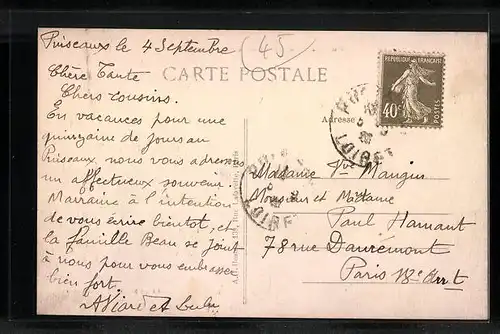 Puiseaux le 4 Septembre (45)
CARTE POSTALE
Chère Tante
Chers cousins.
En vacances pour une
quinzaine de jours au
Puiseaux, nous vous adressons
un affectueux souvenir.
Marraine à l'intention
de vous écrire bientôt, et
la famille Beau se joint
à nous pour vous embrasser
bien fort.
A Viard et Lulu
REPUBLIQUE FRANÇAISE
40c
POSTES
Adresse
LOIRET
LOIRET
Madame Vve Mangin
Monsieur et Madame
Paul Hamant
78 rue Damremont
Paris 18e Arrt